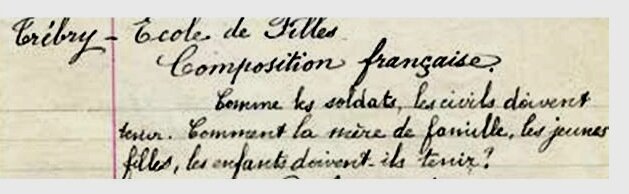 Trébry - Ecole de Filles
Composition française.
Comme les soldats, les civils doivent
tenir. Comment la mère de famille, les jeunes
filles, les enfants doivent-ils tenir?